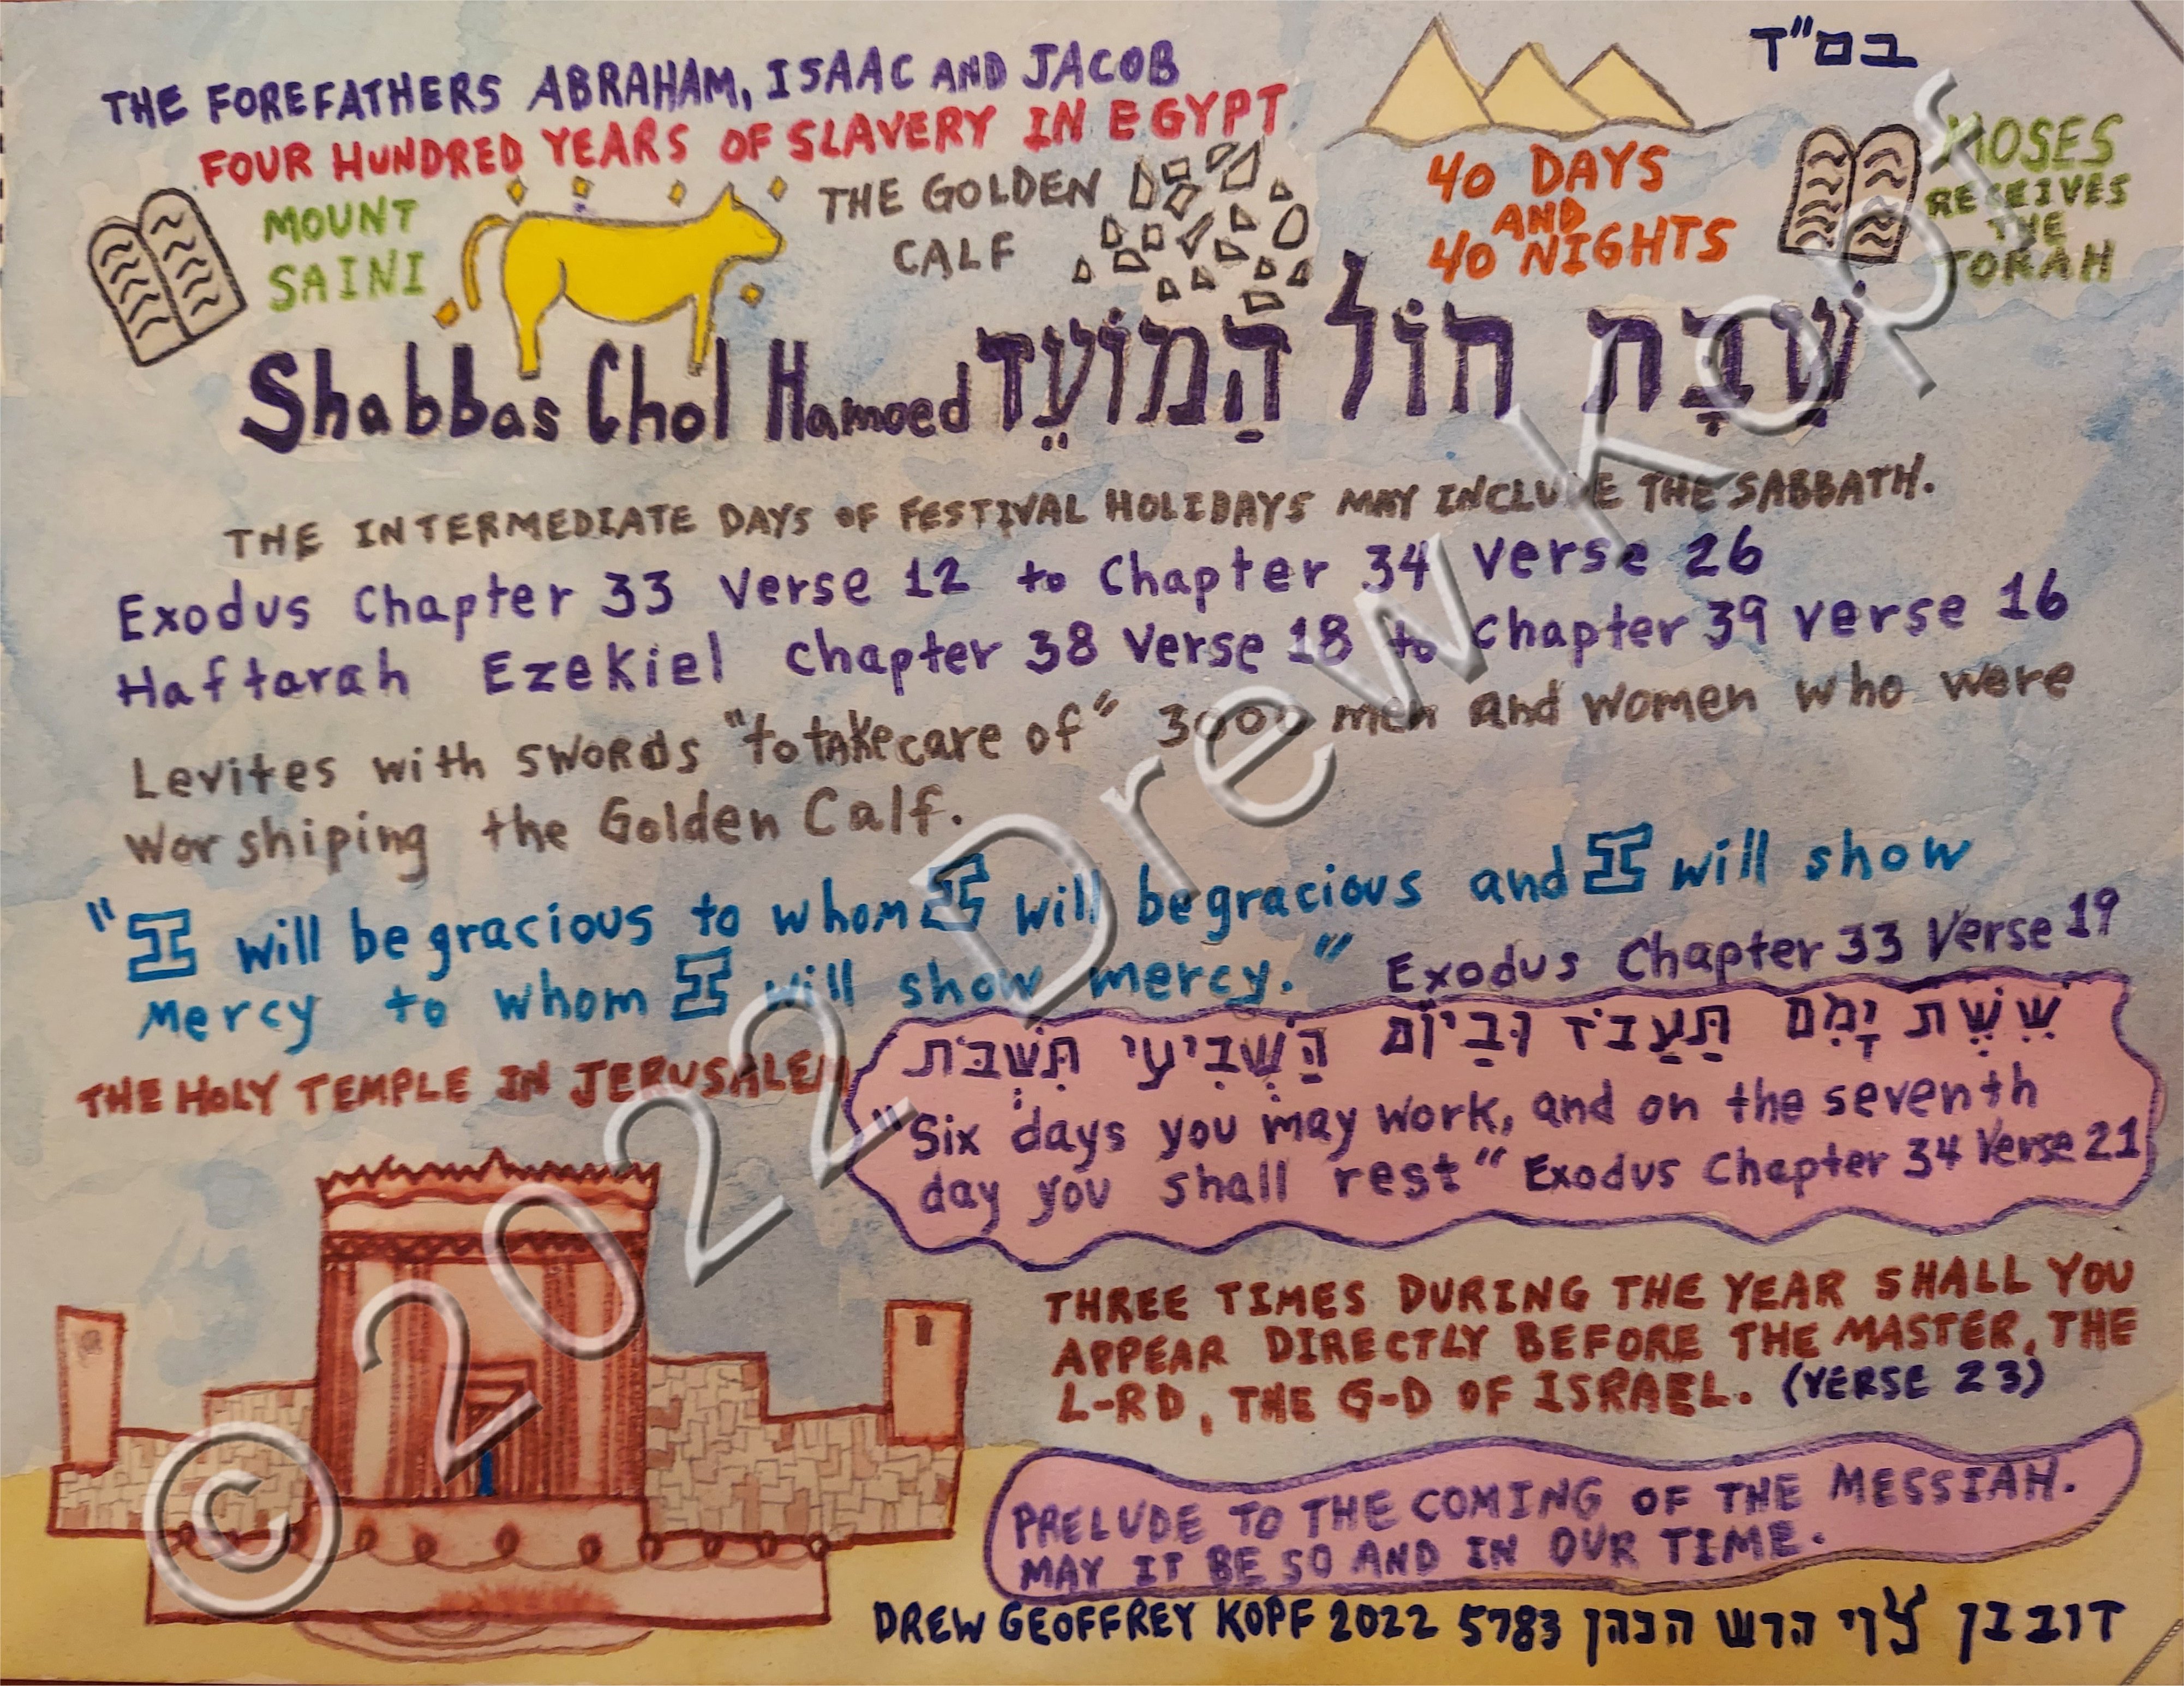 בס"ד
THE FOREFATHERS ABRAHAM, ISAAC AND JACOB
FOUR HUNDRED YEARS OF SLAVERY IN EGYPT
MOUNT
SAINI
THE GOLDEN
CALF
40 DAYS
AND
40 NIGHTS
MOSES
RECEIVES
THE
TORAH
Shabbas Chol Hamoed שַׁבָּת חוֹל הַמּוֹעֵד
THE INTERMEDIATE DAYS OF FESTIVAL HOLIDAYS MAY INCLUDE THE SABBATH.
Exodus Chapter 33 Verse 12 to Chapter 34 verse 26
Haftarah Ezekiel Chapter 38 Verse 18 to Chapter 39 verse 16
Levites with swords "to take care of" 3000 men and women who were
Worshiping the Golden Calf.
"I will be gracious to whom I will be gracious and I will show
Mercy to whom I will show mercy." Exodus Chapter 33 Verse 19
THE HOLY TEMPLE IN JERUSALEM
שֵׁשֶׁת יָמִם תַּעֲבֹד וּבַיוֹם הַשְּׁבִיעִי תִּשְׁבֹּת
"Six days you may work, and on the seventh
day you shall rest" Exodus Chapter 34 Verse 21
THREE TIMES DURING THE YEAR SHALL YOU
APPEAR DIRECTLY BEFORE THE MASTER, THE
L-RD, THE G-D OF ISRAEL. (VERSE 23)
PRELUDE TO THE COMING OF THE MESSIAH.
MAY IT BE SO AND IN OUR TIME.
DREW GEOFFREY KOPF 2022 5783 דוב בן צוי הרש הכהן
© 2022 Drew Kopf